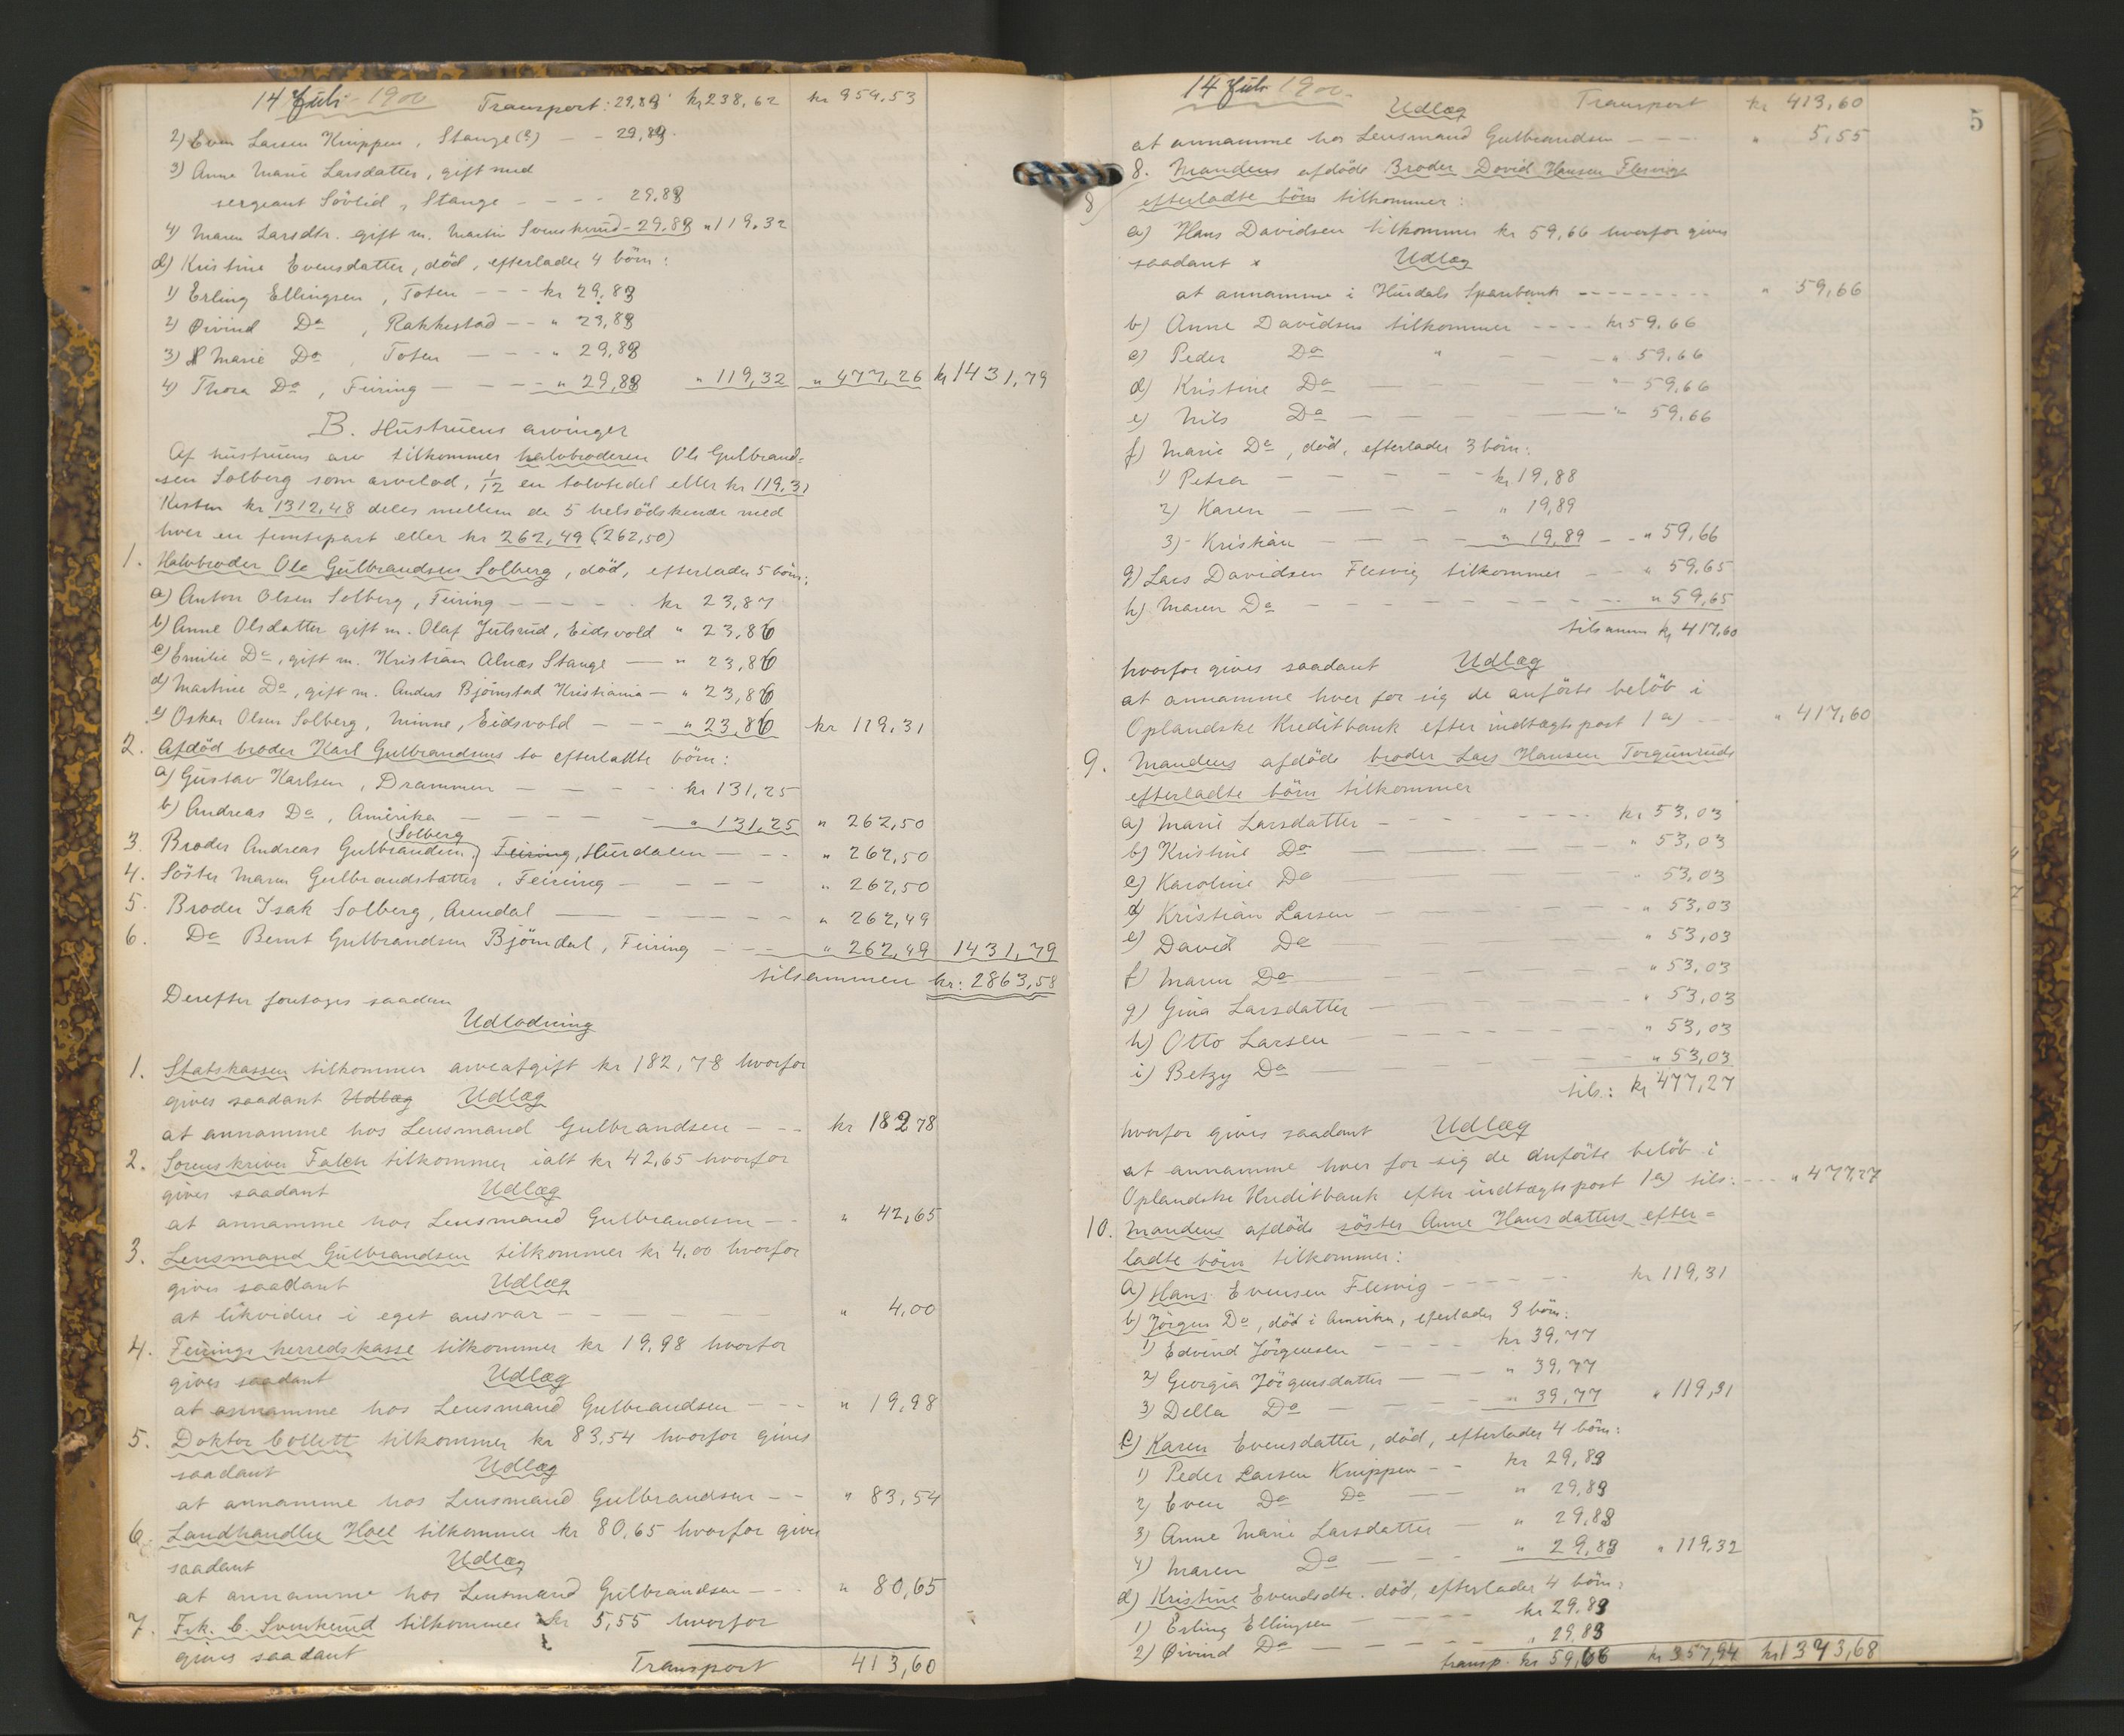 14 Juli 1900 Transport: 29,83 kr 238,62 kr 954,53
2) Even Larsen Knippen, Stange (?) - - 29,83.
3) Anne Marie Larsdatter, gift med
sergeant Sövlid, Stange - - - - 29,83
4) Maren Larsdtr. gift m. Martin Svenskerud - 29,83 " 119,32
d) Kristine Evensdatter, död, efterlader 4 börn:
1) Erling Ellingsen, Toten - - - kr 29,83
2) Øivind Do, Rakkestad - - " 29,83
3) Marie Do, Toten - - - " 29,83
4) Thora Do, Feiring - - - - " 29,83 " 119,32 " 477,26 kr 1431,79
B. Hustruens arvinger
Af hustruens arv tilkommer halvbroderen Ole Gulbrand=
sen Solberg som arvelod, 1/12 en tolvtedel eller kr 119,31
Resten kr 1312,48 deles mellem de 5 helsödskende med
hver en femtepart eller kr 262,49 (262,50)
1. Halvbroder Ole Gulbrandsen Solberg, död, efterlader 5 börn:
a) Anton Olsen Solberg, Feiring - - - - - kr 23,87
b) Anne Olsdatter gift m. Olaf Julsrud, Eidsvold " 23,86
c) Emilie Do, gift m. Kristian Alnæs Stange — " 23,86
d) Martine Do, gift m. Anders Björnstad Kristiania — " 23,86
e) Oskar Olsen Solberg, Minne, Eidsvold - - - " 23,86 kr 119,31
2. Afdöd broder Karl Gulbrandsens to efterladte börn:
a) Gustav Karlsen, Drammen - - - - kr 131,25
b) Andreas Do, Amerika - - - - - " 131,25 " 262,50
Solberg
3. Broder Andreas Gulbrandsen, Feiring, Hurdalen - - - " 262,50
4. Söster Maren Gulbrandsdatter, Feiring - - - - " 262,50
5. Broder Isak Solberg, Arendal - - - - - - " 262,49
6. Do Bernt Gulbrandsen Björndal, Feiring - - - " 262,49 1431,79
tilsammen kr: 2863,58
Derefter foretoges saadan
Udlodning
1. Statskassen tilkommer arveafgift kr 182,78 hvorfor
gives saadant Udlæg Udlæg
at annamme hos Lensmand Gulbrandsen - - - kr 182 78
2. Sorenskriver Falch tilkommer ialt kr 42,65 hvorfor
gives saadant Udlæg
at annamme hos Lensmand Gulbrandsen - - " 42,65
3. Lensmand Gulbrandsen tilkommer kr 4,00 hvorfor
gives saadant Udlæg
at likvidere i eget ansvar - - - - " 4,00
4. Feirings herredskasse tilkommer kr 19,98 hvorfor
gives saadant Udlæg
at annamme hos Lensmand Gulbrandsen - - - " 19,98
5. Doktor Collett tilkommer kr 83,54 hvorfor gives
saadant Udlæg
at annamme hos Lensmand Gulbrandsen - - " 83,54
6. Landhandler Hoel tilkommer kr 80,65 hvorfor gives
saadant Udlæg
at annamme hos Lensmand Gulbrandsen - - - " 80,65
7. Frk. C. Svenkerud tilkommer kr 5,55 hvorfor
gives saadant
Transport 413,60
5
14 Juli 1900. Udlæg Transport kr 413,60
at annamme hos Lensmand Gulbrandsen - - - " 5,55
8. Mandens afdöde Broder David Hansen Flesvigs
8 efterladte börn tilkommer:
a) Hans Davidsen tilkommer kr 59,66 hvorfor gives
saadant Udlæg
at annamme i Hurdals Sparebank - - - - - - - - " 59,66
b) Anne Davidsen tilkommer - - - - kr 59.66
c) Peder Do " - - - - " 59.66
d) Kristine Do - - - - - " 59,66
e) Nils Do - - - - - " 59.66
f) Marie Do, död, efterlader 3 börn:
1) Petra - - - - - - kr 19,88
2) Karen - - - - - " 19,89
3) Kristian - - - - - " 19,89 - - " 59,66
g) Lars Davidsen Flesvig tilkommer - - " 59,65
h) Maren Do - - - - - - - - - " 59,65
tilsamm kr 417,60
hvorfor gives saadant Udlæg
at annamme hver for sig de anförte belöb i
Oplandske Kreditbank efter indtægtspost 1 a) - - - " 417,60
9. Mandens afdöde broder Lars Hansen Torgunruds
efterladte börn tilkommer
a) Marie Larsdatter - - - - - - - kr 53,03
b) Kristine Do - - - - - " 53,03
c) Karoline Do - - - - - " 53,03
d) Kristian Larsen - - - - - - " 53,03
e) David Do - - - - - " 53,03
f) Maren Do - - - - - " 53,03
g) Gina Larsdatter - - - - - - " 53,03
h) Otto Larsen - - - - - - " 53,03
i) Betzy Do - - - - - - " 53,03
tils: kr 477,27
hvorfor gives saadant Udlæg
at annamme hver for sig de anförte belöb i
Oplandske Kreditbank efter indtægtspost 1 a) tils: - - - " 477,27
10. Mandens afdöde söster Anne Hansdatters efter=
ladte börn tilkommer:
a) Hans Evensen Flesvig - - - - - - kr 119,31
b) Jörgen Do, död i Amerika, efterlader 3 börn:
1) Edvind Jörgensen - - - - kr 39,77
2) Georgia Jörgensdatter - - - " 39,77
3) Della Do - - - - - " 39,77 " 119,31
c) Karen Evensdatter, död, efterlader 4 börn:
1) Peder Larsen Knippen - - kr 29,83
2) Even Do Do - - " 29,83
3) Anne Marie Larsdatter - " 29,83
4) Maren Do - - - " 29,83 " 119,32
d) Kristine Evensdtr. död, efterlader 4 börn:
1) Erling Ellingsen - - - - - kr 29,83
2) Øivind Do - - - - - - " 29,83
transp. kr 59,66 kr 357,94 kr 1373,68